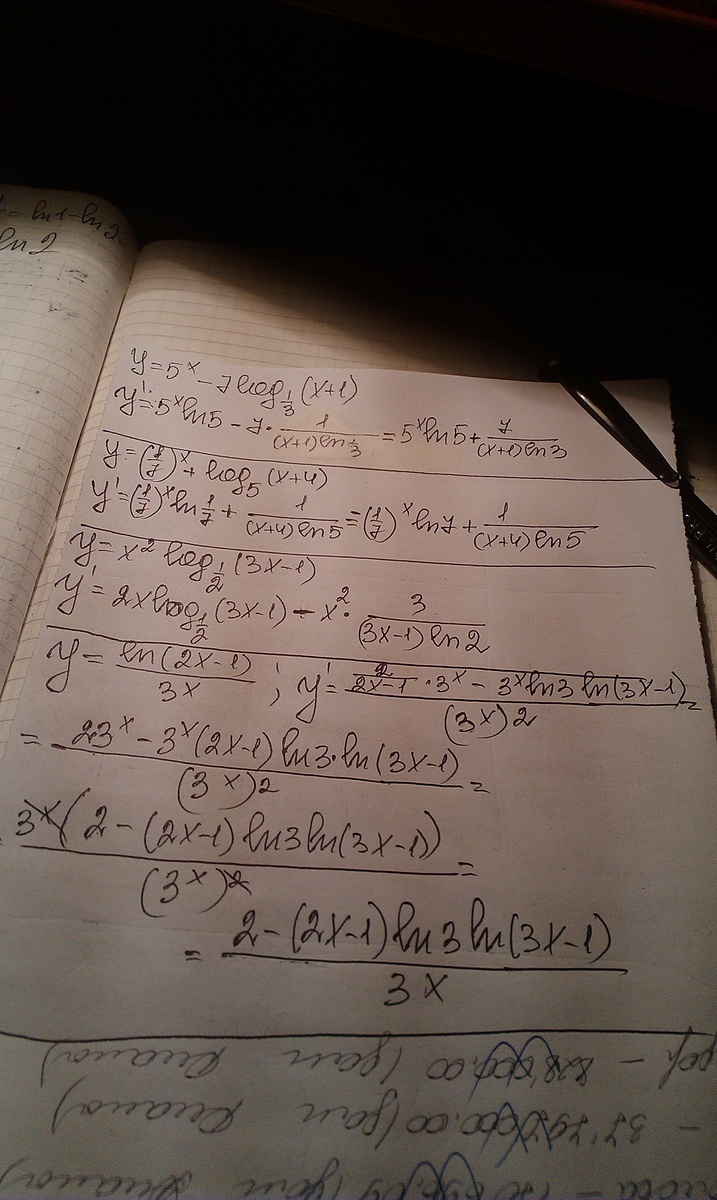 = ln1-ln2=
ln2
y=5^x - 7log_{1/3}(x+1)
y'=5^x ln5 - 7·1/((x+1)ln 1/3) = 5^x ln5 + 7/((x+1)ln3)
y=(1/7)^x + log_5(x+4)
y'=(1/7)^x ln 1/7 + 1/((x+4)ln5) = (1/7)^x ln7 + 1/((x+4)ln5)
y=x² log_{1/2}(3x-1)
y'=2x log_{1/2}(3x-1) - x²· 3/((3x-1)ln2)
y= ln(2x-1)/3x ; y'= (2/(2x-1)·3^x - 3^x ln3 ln(3x-1))/(3^x)² =
= (23^x - 3^x(2x-1)ln3·ln(3x-1))/(3^x)² =
3^x(2-(2x-1)ln3ln(3x-1))/(3^x)² =
= (2-(2x-1)ln3ln(3x-1))/3x